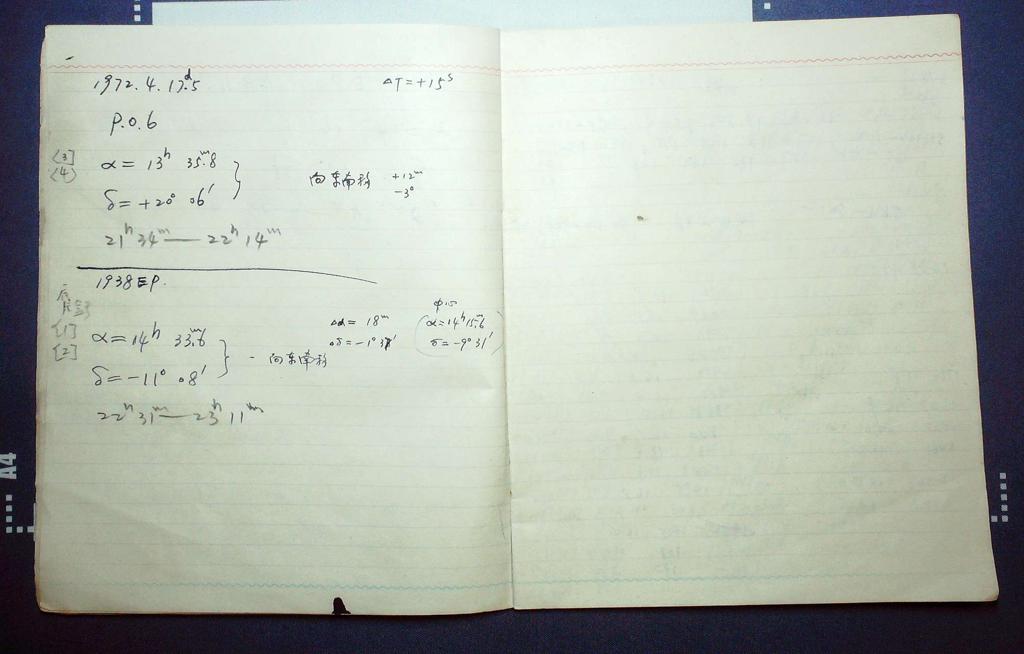 1972.4.17ᵈ.5 ΔT=+15ˢ
P.O.6
[3]
[4]
α= 13ʰ 35ᵐ.8
δ= +20° 06′
向东南移 +12ᵐ
-3°
21ʰ34ᵐ—22ʰ14ᵐ
1938EP.
[1]
[2]
α=14ʰ 33ᵐ.6
δ=-11° 08′
- 向东南移
Δα= 18ᵐ
Δδ=-1°37′
中心
(α=14ʰ15ᵐ.6
δ=-9°31′)
22ʰ31ᵐ—23ʰ11ᵐ
A4